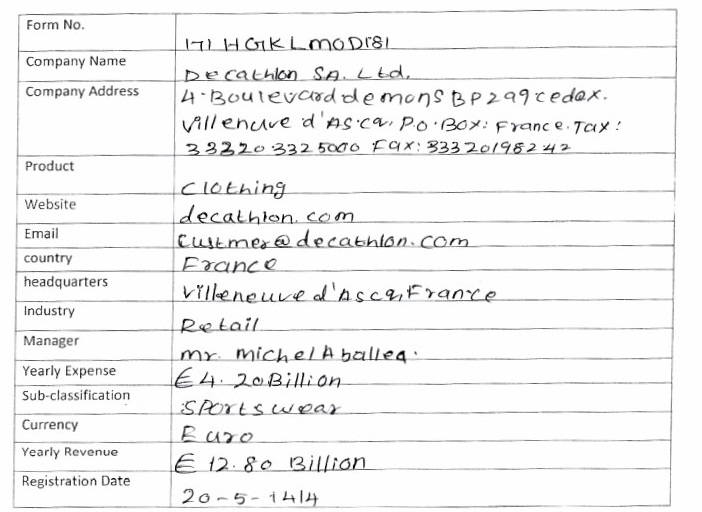 Form No.
171 HGKLMODI81
Company Name
Decathlon SA. Ltd.
Company Address
4. Boulevard de mons BP299 cedex.
Villeneuve d'As.ca, P.O. Box: France. Tax:
33320 3325000 Fax: 33320198242
Product
Clothing
Website
decathlon.com
Email
Custmer@decathlon.com
country
France
headquarters
Villeneuve d'Asca, France
Industry
Retail
Manager
mr. Michel Aballea.
Yearly Expense
€4.20 Billion
Sub-classification
Sportswear
Currency
Euro
Yearly Revenue
€ 12.80 Billion
Registration Date
20-5-1414